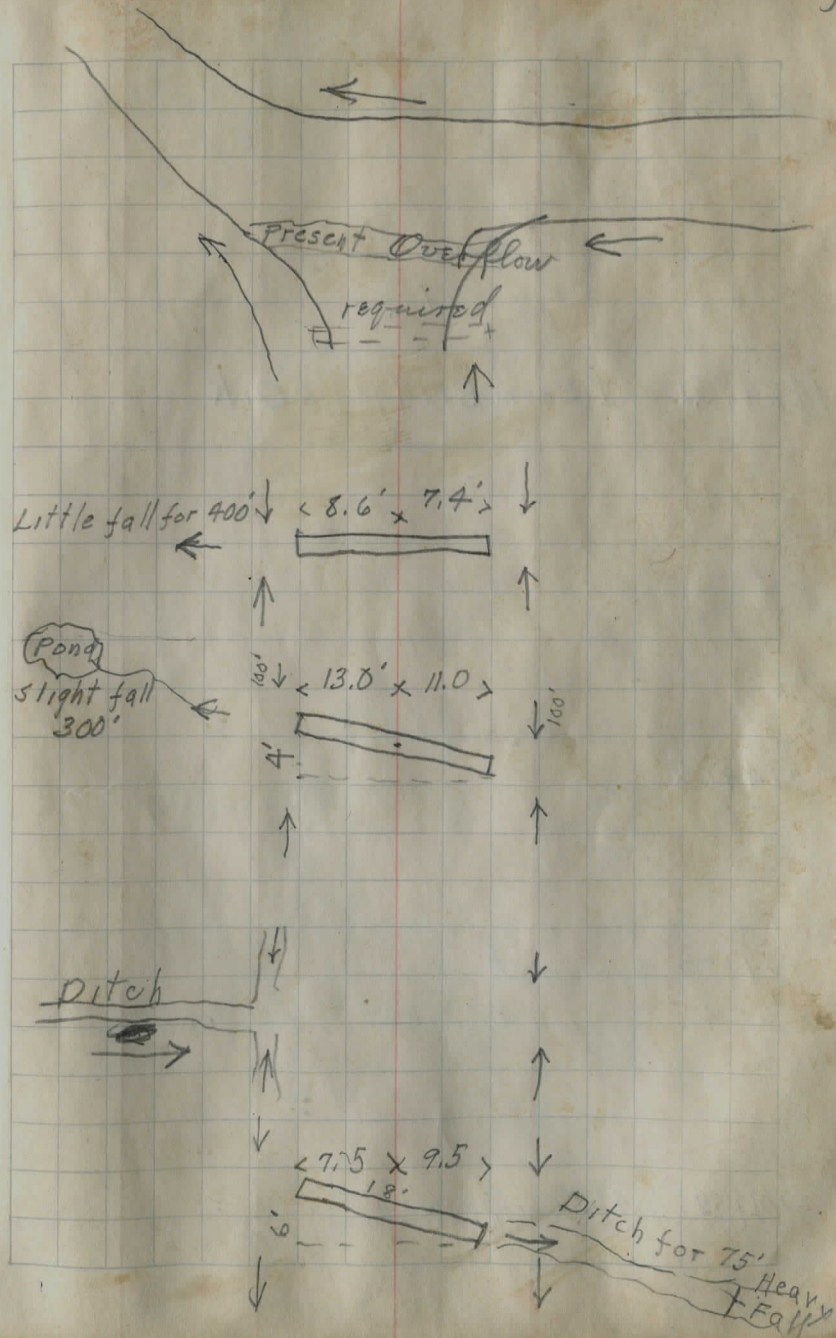 Present Overflow
required
Little fall for 400'
< 8.6' x 7.4' >
Pond
slight fall
300'
100'
< 13.0' x 11.0 >
100'
4'
Ditch
< 7.5 x 9.5 >
18'
6'
Ditch for 75'
Heavy
Fall